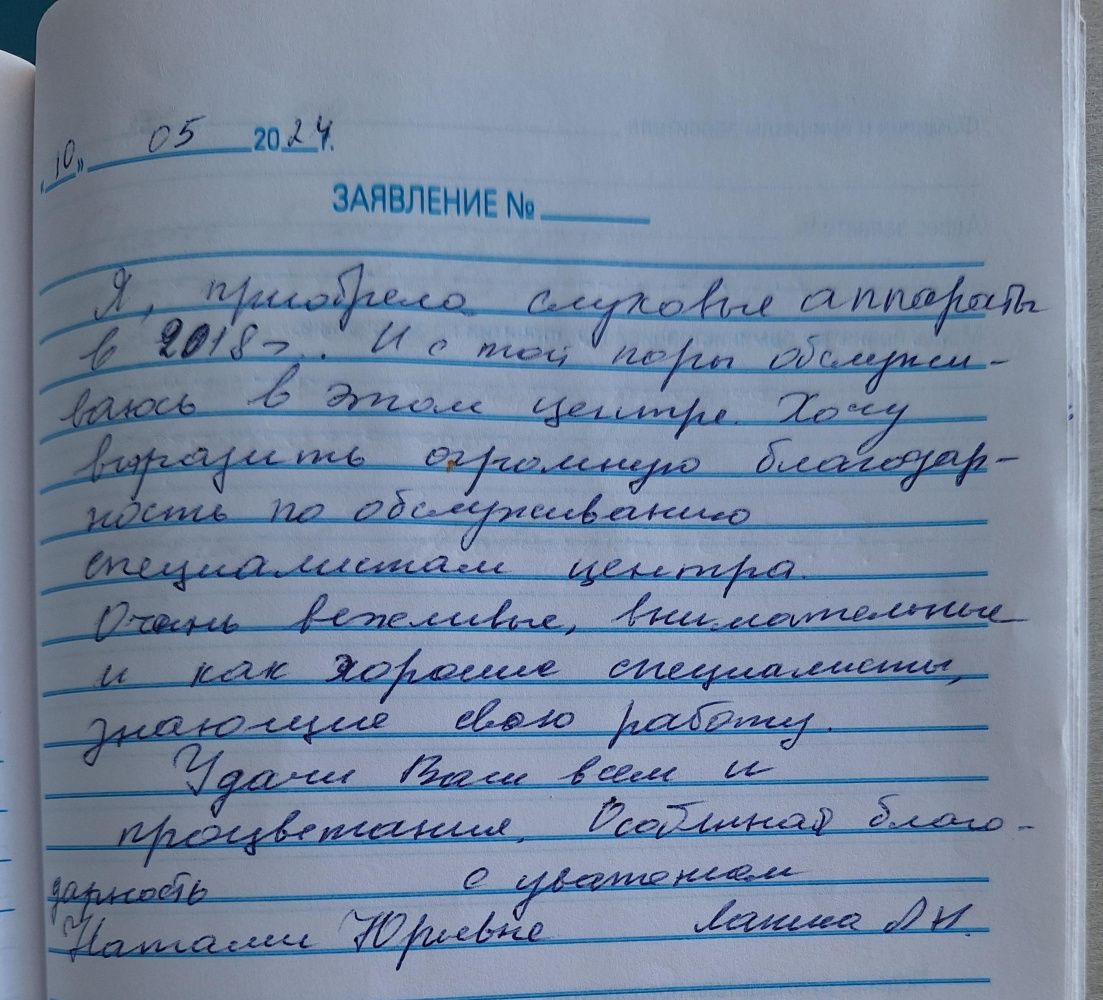 "10" 05 2024г.
ЗАЯВЛЕНИЕ №
Я, приобрела слуховые аппараты
в 2018г.. И с той поры обслужи-
ваюсь в этом центре. Хочу
выразить огромную благодар-
ность по обслуживанию
специалистам центра.
Очень вежливые, внимательные
и как хорошие специалисты,
знающие свою работу.
Удачи Вам всем и
процветания. Особенная благо-
дарность с уважением
Натали Юрьевне Л.Н.